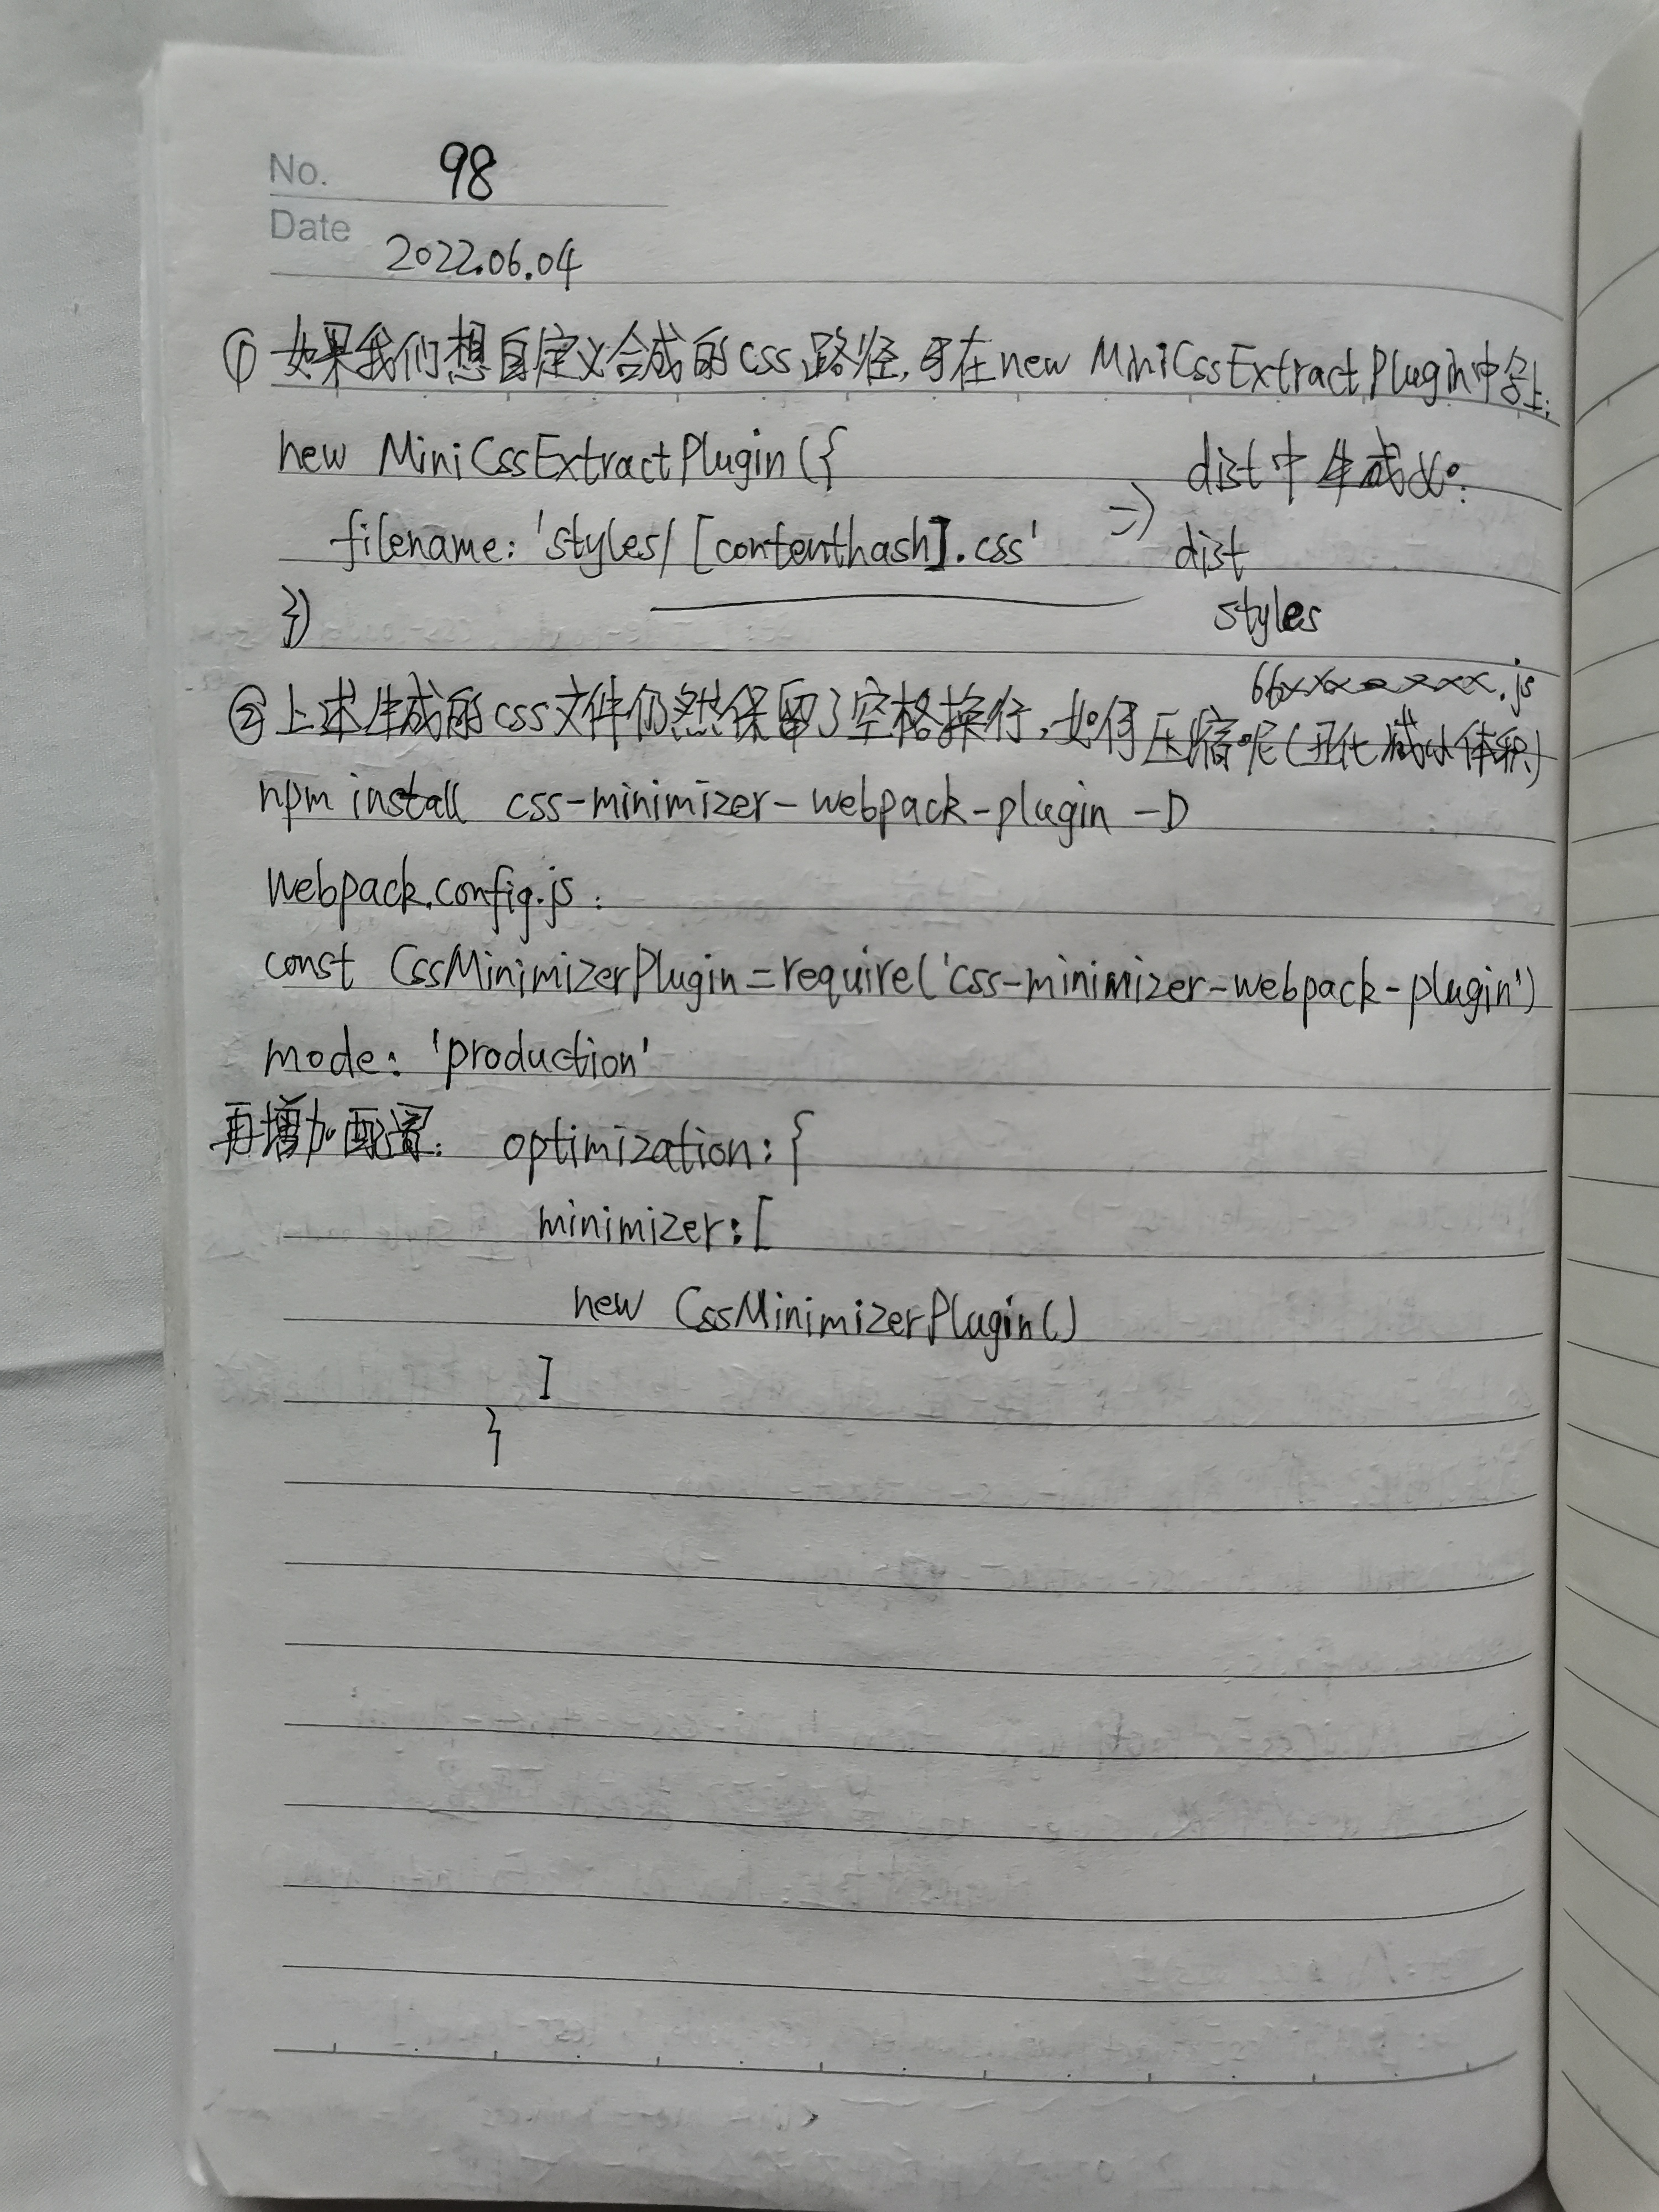 No. 98
Date 2022.06.04
① 如果我们想自定义合成的css路径,可在new MiniCssExtractPlugin中写上:
new MiniCssExtractPlugin({
dist中生成如:
filename: 'styles/[contenthash].css'
=> dist
})
styles
66xxxxxxxx.js
② 上述生成的css文件仍然保留了空格换行,如何压缩呢(丑化减小体积)
npm install css-minimizer-webpack-plugin -D
webpack.config.js:
const CssMinimizerPlugin=require('css-minimizer-webpack-plugin')
mode: 'production'
再增加配置: optimization:{
minimizer:[
new CssMinimizerPlugin()
]
}